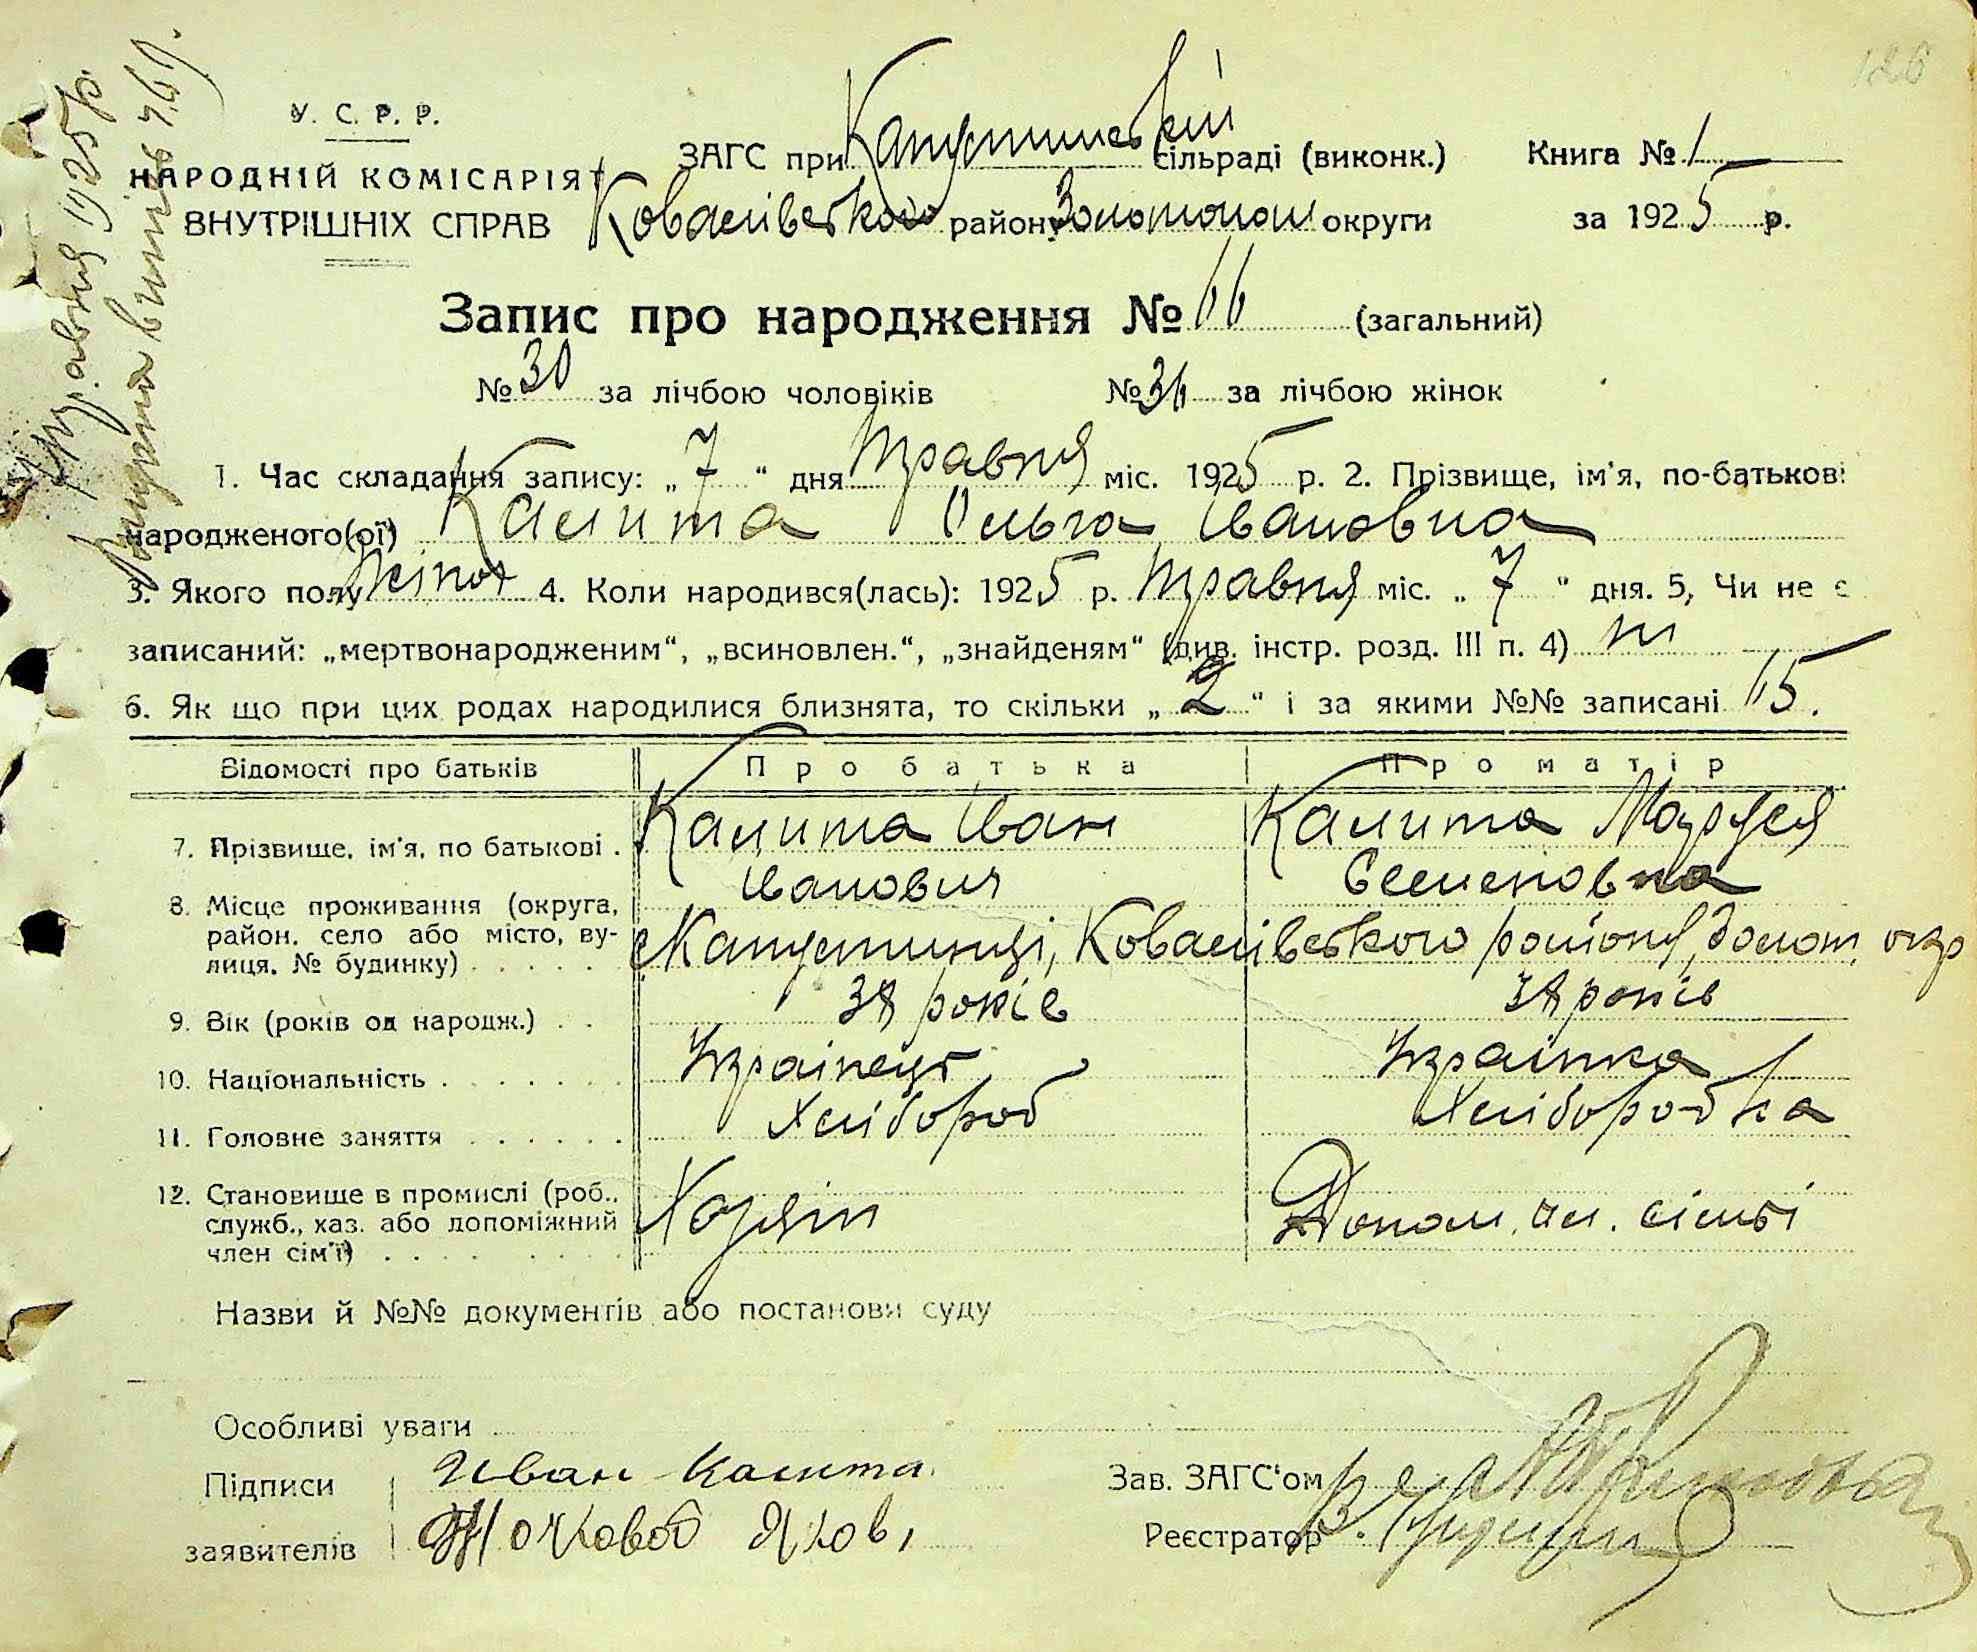 126
У. С. Р. Р.
НАРОДНІЙ КОМІСАРІЯТ
ВНУТРІШНІХ СПРАВ
ЗАГС при Капустинській сільраді (виконк.)
Ковалівського району Золотонош округи
Книга № 1
за 1925 р.
Запис про народження № 66 (загальний)
№ 30 за лічбою чоловіків № 36 за лічбою жінок
1. Час складання запису: „7" дня травня міс. 1925 р. 2. Прізвище, ім'я, по-батькові
народженого(ої) Калита Ольга Івановна
3. Якого полу жіноч 4. Коли народився(лась): 1925 р. травня міс. „7" дня. 5, Чи не є
записаний: „мертвонародженим", „всиновлен.", „знайденям" (див. інстр. розд. III п. 4) ні
6. Як що при цих родах народилися близнята, то скільки „2" і за якими №№ записані 65.
Відомості про батьків Про батька Про матір
7. Прізвище, ім'я, по батькові . Калита Іван Іванович Калита Маруся Семеновна
8. Місце проживання (округа,
район. село або місто, ву-
лиця. № будинку) . . . . . Капустинці, Ковалівського району, Золот. окр
9. Вік (років од народж.) . . 38 років 38 років
10. Національність . . . . . . . Українець Українка
11. Головне заняття . . . . . . Хлібороб Хліборобка
12. Становище в промислі (роб.,
служб., хаз. або допоміжний
член сім'ї) . . . . . . . . Хазяїн Допом. чл. сімьі
Назви й №№ документів або постанови суду
Особливі уваги
Підписи
заявителів
Иван Калита
Яков
Зав. ЗАГС'ом
Реєстратор
травня 1925 р.